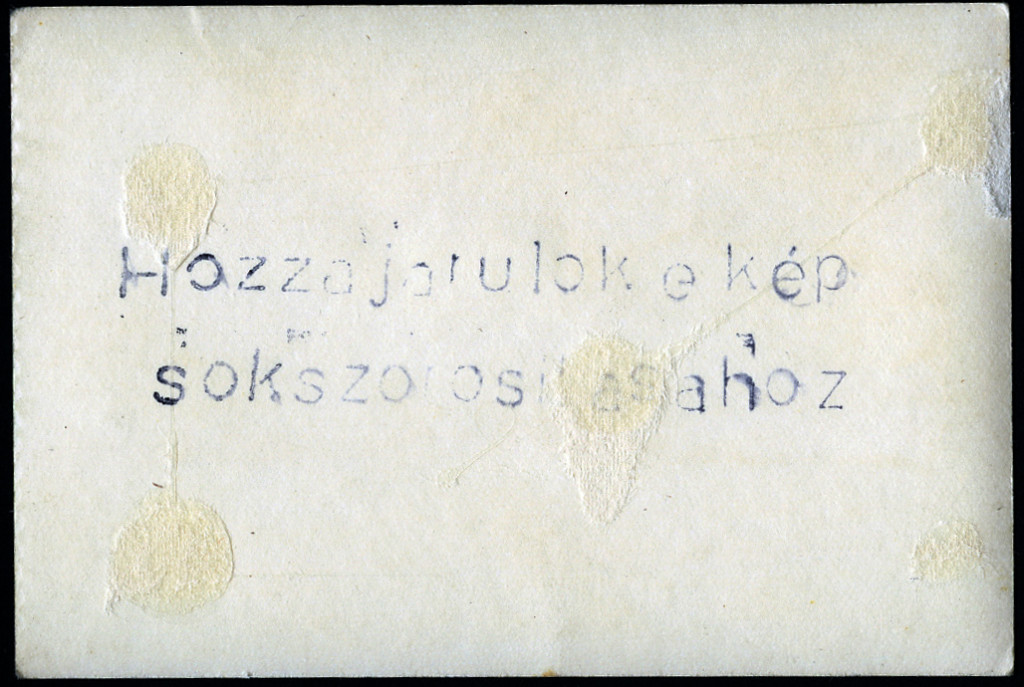 Hozzájarulok e kép
sokszorositásához